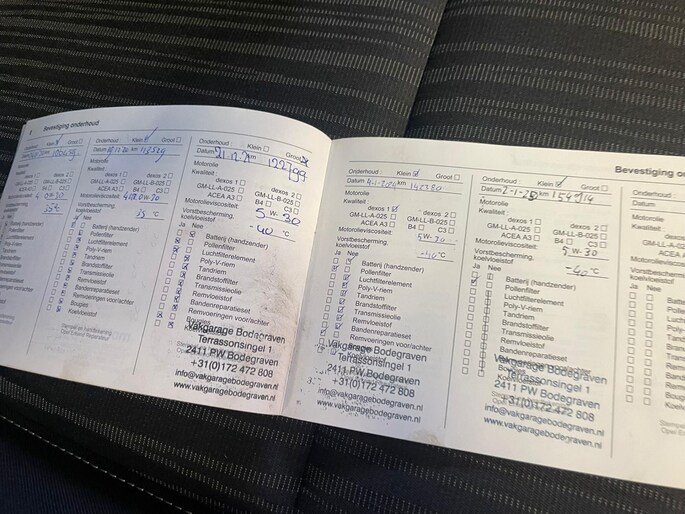 Bevestiging onderhoud
Onderhoud: Klein Groot
Datum km
Motorolie
Kwaliteit:
dexos 1 dexos 2
GM-LL-A-025 GM-LL-B-025
ACEA A3 B4 C3
Motorolieviscositeit:
Vorstbescherming,
koelvloeistof
Ja Nee
Onderhoud: Klein Groot
km
Motorolie
Kwaliteit:
dexos 1 dexos 2
GM-LL-A-025 GM-LL-B-025
ACEA A3 B4 C3
Motorolieviscositeit:
Vorstbescherming,
koelvloeistof
°C
Ja Nee
Batterij (handzender)
Pollenfilter
Luchtfilterelement
Poly-V-riem
Tandriem
Brandstoffilter
Transmissieolie
Remvloeistof
Bandenreparatieset
Remvoeringen voor/achter
Bougies
Onderhoud: Klein Groot
Datum km 122799
Motorolie
Kwaliteit:
dexos 1 dexos 2
GM-LL-A-025 GM-LL-B-025
ACEA A3 B4 C3
Motorolieviscositeit:
5W-30
Vorstbescherming,
koelvloeistof
-40 °C
Ja Nee
Batterij (handzender)
Pollenfilter
Luchtfilterelement
Poly-V-riem
Tandriem
Brandstoffilter
Transmissieolie
Remvloeistof
Bandenreparatieset
Remvoeringen voor/achter
Bougies
Vakgarage Bodegraven
Terrassonsingel 1
2411 PW Bodegraven
+31(0)172 472 808
info@vakgaragebodegraven.nl
www.vakgaragebodegraven.nl
Onderhoud: Klein Groot
Datum km
Motorolie
Kwaliteit:
dexos 1 dexos 2
GM-LL-A-025 GM-LL-B-025
ACEA A3 B4 C3
Motorolieviscositeit:
5W-30
Vorstbescherming,
koelvloeistof
-40 °C
Ja Nee
Batterij (handzender)
Pollenfilter
Luchtfilterelement
Poly-V-riem
Tandriem
Brandstoffilter
Transmissieolie
Remvloeistof
Bandenreparatieset
Remvoeringen voor/achter
Vakgarage Bodegraven
Terrassonsingel 1
2411 PW Bodegraven
+31(0)172 472 808
info@vakgaragebodegraven.nl
www.vakgaragebodegraven.nl
Onderhoud: Klein Groot
Datum 2-1-25 km 154914
Motorolie
Kwaliteit:
dexos 1 dexos 2
GM-LL-A-025 GM-LL-B-025
ACEA A3 B4 C3
Motorolieviscositeit:
5W-30
Vorstbescherming,
koelvloeistof
-40 °C
Ja Nee
Batterij (handzender)
Pollenfilter
Luchtfilterelement
Poly-V-riem
Tandriem
Brandstoffilter
Transmissieolie
Remvloeistof
Bandenreparatieset
Vakgarage Bodegraven
Terrassonsingel 1
2411 PW Bodegraven
+31(0)172 472 808
info@vakgaragebodegraven.nl
www.vakgaragebodegraven.nl
Bevestiging
Onderhoud:
Datum
Motorolie
Kwaliteit:
GM-LL-A-025
ACEA
Motorolieviscositeit
Vorstbescherming
koelvloeistof
Ja Nee